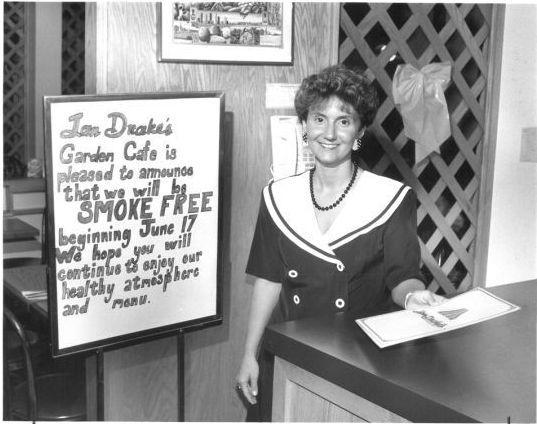 Jan Drake's
Garden Cafe is
pleased to announce
that we will be
SMOKE FREE
beginning June 17
We hope you will
continue to enjoy our
healthy atmosphere
and menu.